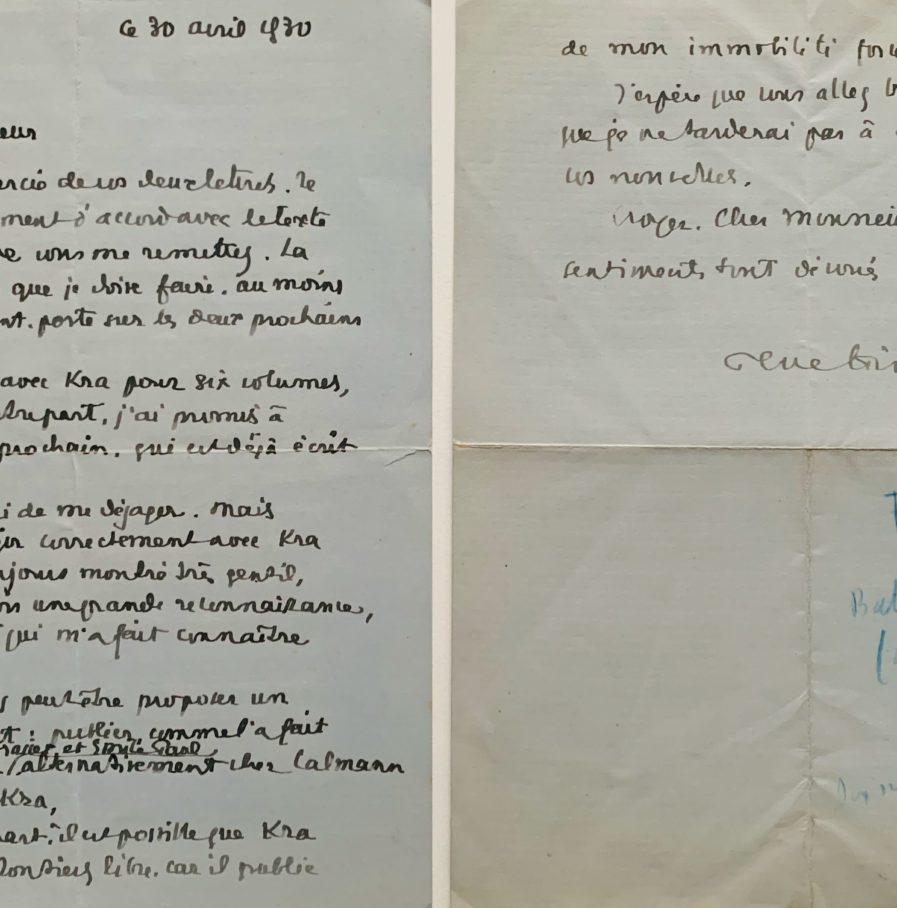 ce 30 avril 1930
eur
ercié de vos deux lettres. Je
ment d'accord avec le texte
e vous me remettez. La
que je doive faire, au moins
nt. porte sur les deux prochains
avec Kra pour six volumes,
j'ai promis à
prochain, qui est déjà écrit
i de me dégager. Mais
correctement avec Kra
ujours montré très gentil,
une grande reconnaissance,
qui m'a fait connaître
s peut être proposer un
t : publier, comme l'a fait
et
alternativement chez Calmann
Kra,
part, il est possible que Kra
libre, car il publie
de mon immobilité forc
J'espère que vous allez b
que je ne tarderai pas à
vos nouvelles.
Croyez, cher monsieu
sentiments tout dévoués
Bal
(